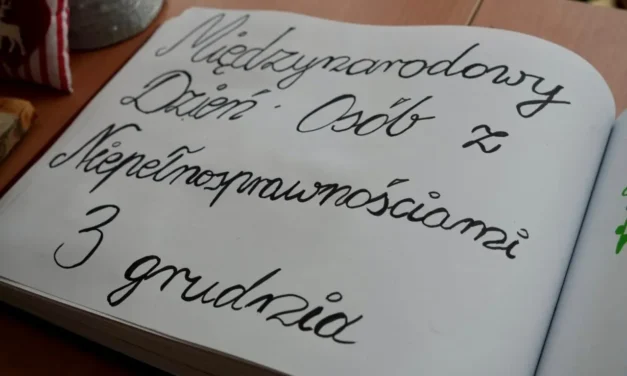 Międzynarodowy
Dzień Osób z
Niepełnosprawnościami
3 grudnia